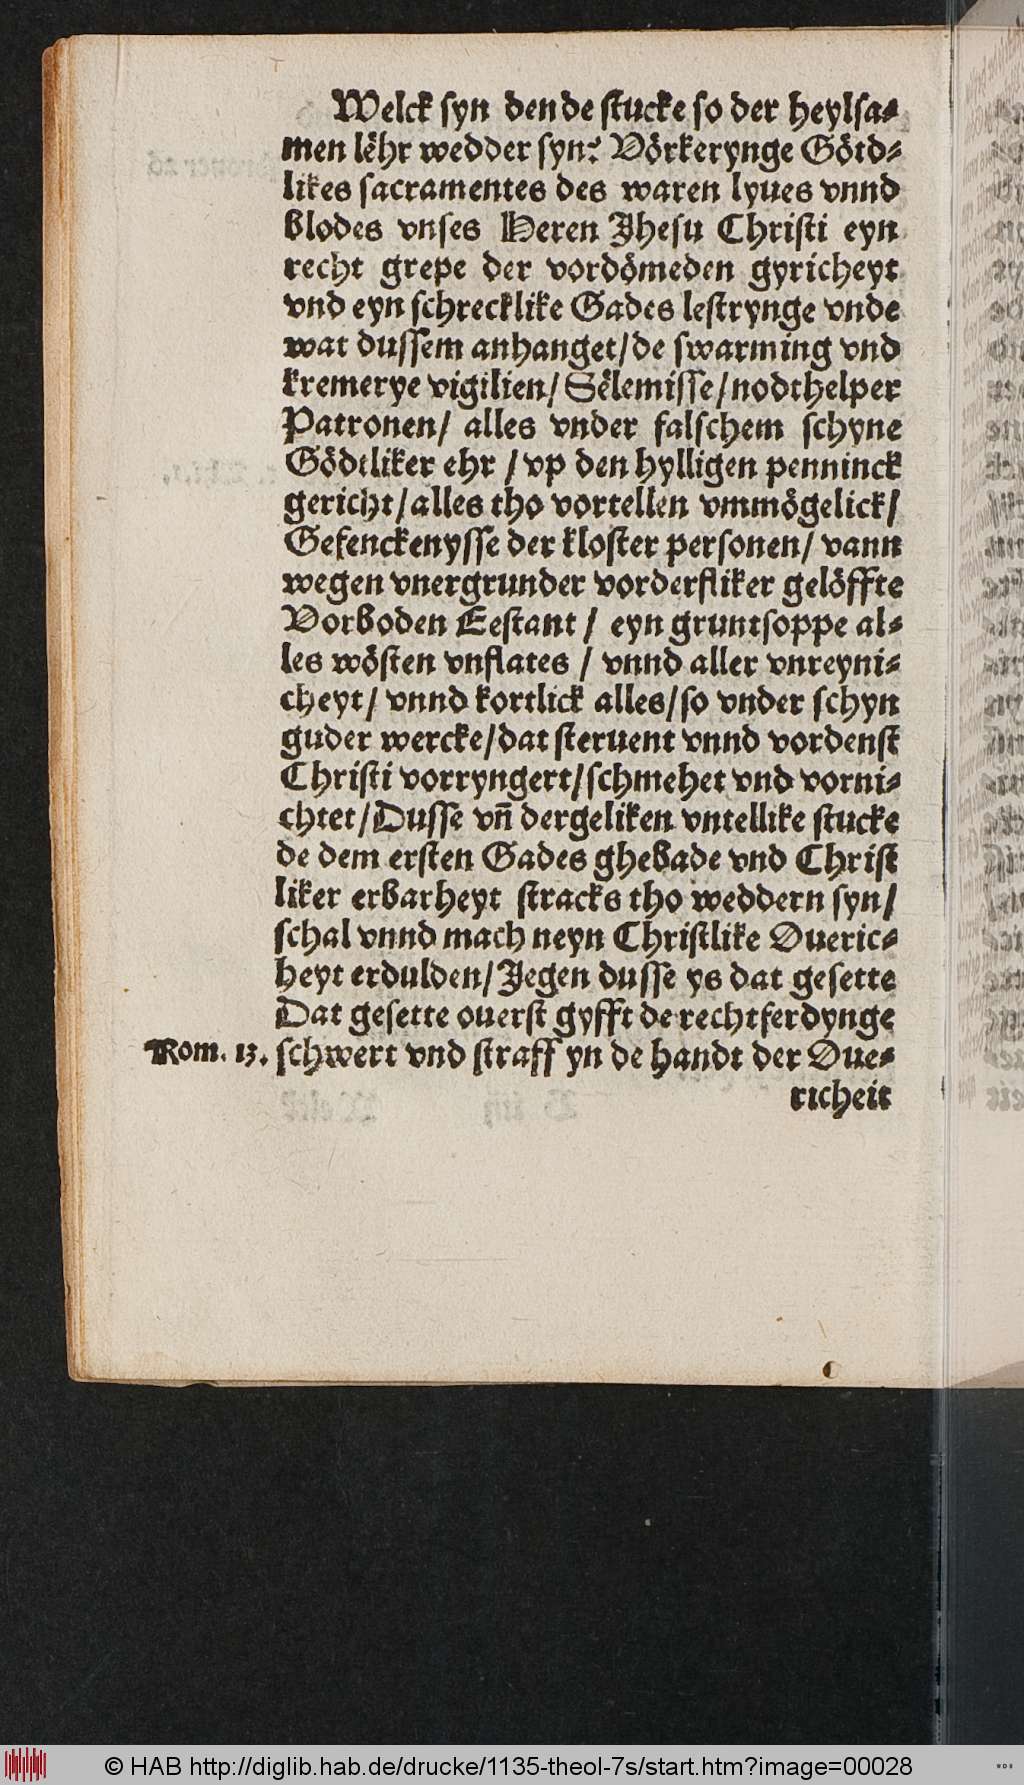 Welck syn den de stucke so der heylsa⸗
men lëhr wedder syn? Vörkerynge Götd⸗
likes sacramentes des waren lyues vnnd
blodes vnses Heren Jhesu Christi eyn
recht grepe der vordömeden gyricheyt
vnd eyn schrecklike Gades lestrynge vnde
wat dussem anhanget/de swarming vnd
kremerye vigilien/ Sëlemisse/nodthelper
Patronen/ alles vnder falschem schyne
Gödtliker ehr /vp den hylligen penninck
gericht/alles tho vortellen vmmögelick/
Gefenckenysse der kloster personen/ vann
wegen vnergrunder vorderfliker gelöffte
Vorboden Eestant / eyn gruntsoppe al⸗
les wösten vnflates / vnnd aller vnreyni⸗
cheyt/ vnnd kortlick alles/so vnder schyn
guder wercke/dat steruent vnnd vordenst
Christi vorryngert/schmehet vnd vorni⸗
chtet/Dusse vn̄ dergeliken vntellike stucke
de dem ersten Gades ghebade vnd Christ
liker erbarheyt stracks tho weddern syn/
schal vnnd mach neyn Christlike Oueric⸗
heyt erdulden/Jegen dusse ys dat gesette
Dat gesette ouerst gyfft de rechtferdynge
Rom. 13. schwert vnd straff yn de handt der Oue⸗
richeit
© HAB http://diglib.hab.de/drucke/1135-theol-7s/start.htm?image=00028